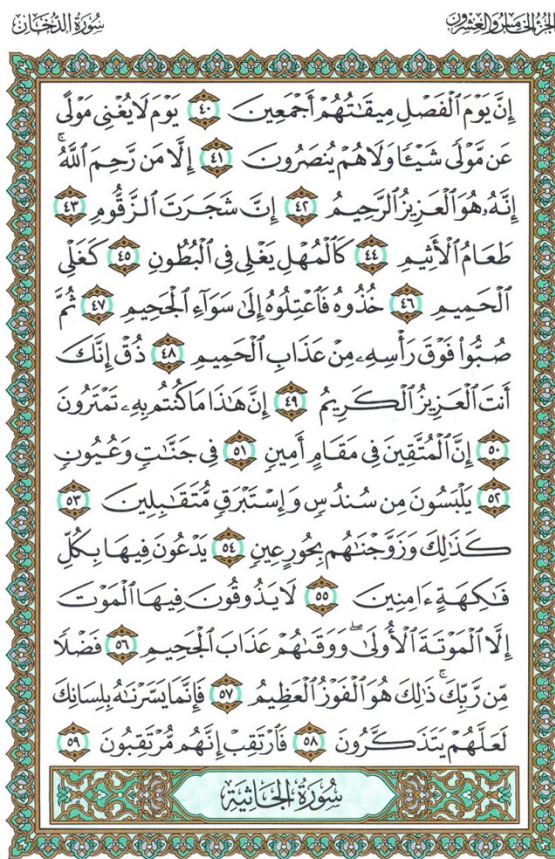 الجزء الخامس والعشرون سورة الدخان
إِنَّ يَوْمَ ٱلْفَصْلِ مِيقَٰتُهُمْ أَجْمَعِينَ ٤٠ يَوْمَ لَا يُغْنِى مَوْلًى
عَن مَّوْلًى شَيْـًٔا وَلَا هُمْ يُنصَرُونَ ٤١ إِلَّا مَن رَّحِمَ ٱللَّهُ ۚ
إِنَّهُۥ هُوَ ٱلْعَزِيزُ ٱلرَّحِيمُ ٤٢ إِنَّ شَجَرَتَ ٱلزَّقُّومِ ٤٣
طَعَامُ ٱلْأَثِيمِ ٤٤ كَٱلْمُهْلِ يَغْلِى فِى ٱلْبُطُونِ ٤٥ كَغَلْىِ
ٱلْحَمِيمِ ٤٦ خُذُوهُ فَٱعْتِلُوهُ إِلَىٰ سَوَآءِ ٱلْجَحِيمِ ٤٧ ثُمَّ
صُبُّوا۟ فَوْقَ رَأْسِهِۦ مِنْ عَذَابِ ٱلْحَمِيمِ ٤٨ ذُقْ إِنَّكَ
أَنتَ ٱلْعَزِيزُ ٱلْكَرِيمُ ٤٩ إِنَّ هَٰذَا مَا كُنتُم بِهِۦ تَمْتَرُونَ
٥٠ إِنَّ ٱلْمُتَّقِينَ فِى مَقَامٍ أَمِينٍ ٥١ فِى جَنَّٰتٍ وَعُيُونٍ
٥٢ يَلْبَسُونَ مِن سُندُسٍ وَإِسْتَبْرَقٍ مُّتَقَٰبِلِينَ ٥٣
كَذَٰلِكَ وَزَوَّجْنَٰهُم بِحُورٍ عِينٍ ٥٤ يَدْعُونَ فِيهَا بِكُلِّ
فَٰكِهَةٍ ءَامِنِينَ ٥٥ لَا يَذُوقُونَ فِيهَا ٱلْمَوْتَ
إِلَّا ٱلْمَوْتَةَ ٱلْأُولَىٰ ۖ وَوَقَىٰهُمْ عَذَابَ ٱلْجَحِيمِ ٥٦ فَضْلًا
مِّن رَّبِّكَ ۚ ذَٰلِكَ هُوَ ٱلْفَوْزُ ٱلْعَظِيمُ ٥٧ فَإِنَّمَا يَسَّرْنَٰهُ بِلِسَانِكَ
لَعَلَّهُمْ يَتَذَكَّرُونَ ٥٨ فَٱرْتَقِبْ إِنَّهُم مُّرْتَقِبُونَ ٥٩
سُورَةُ الجَاثِيَة